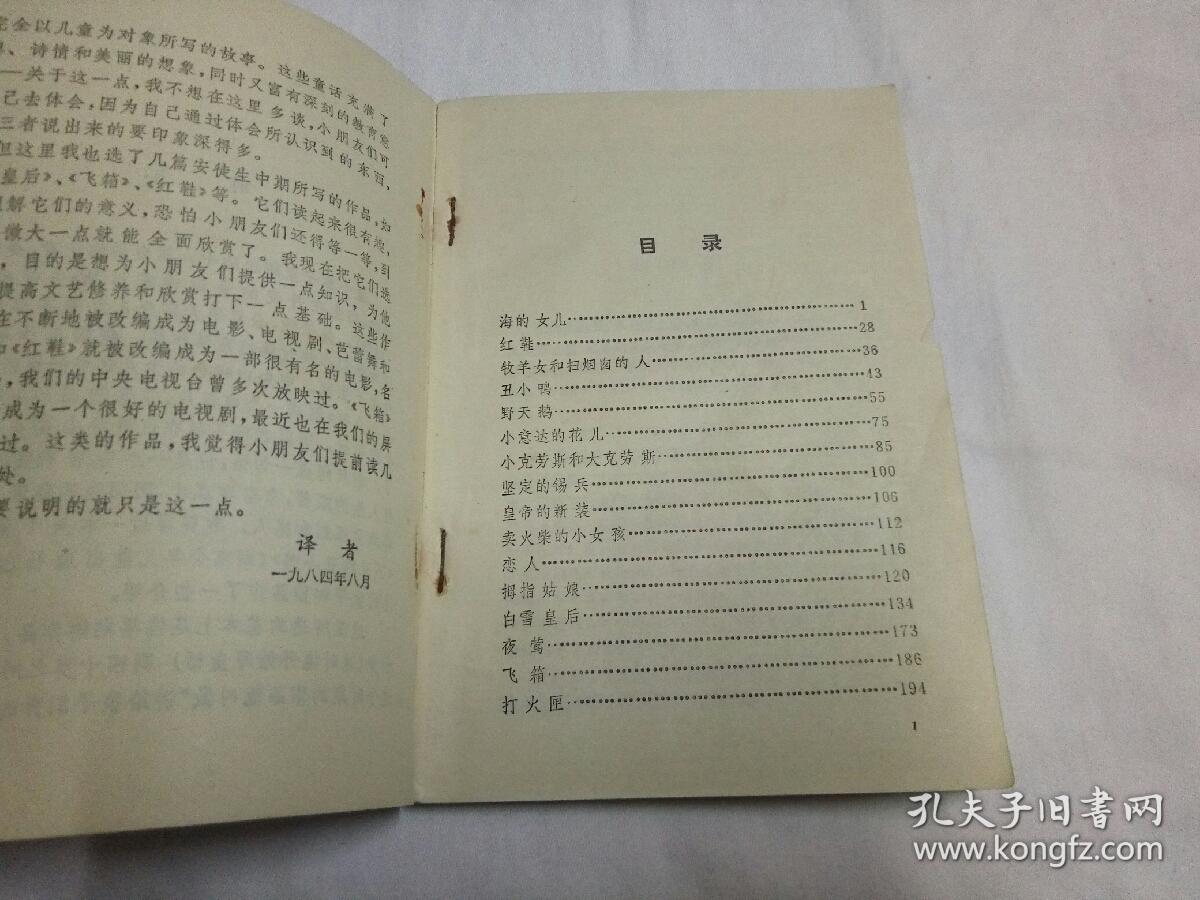 完全以儿童为对象所写的故事。这些童话充满了
、诗情和美丽的想象,同时又富有深刻的教育意
—关于这一点,我不想在这里多谈,小朋友们可
己去体会,因为自己通过体会所认识到的东西,
三者说出来的要印象深得多。
但这里我也选了几篇安徒生中期所写的作品,如
皇后》、《飞箱》、《红鞋》等。它们读起来很有趣,
解它们的意义,恐怕小朋友们还得等一等,到
微大一点就能全面欣赏了。我现在把它们选
,目的是想为小朋友们提供一点知识,为他
提高文艺修养和欣赏打下一点基础。这些作
在不断地被改编成为电影、电视剧、芭蕾舞和
《红鞋》就被改编成为一部很有名的电影,名
,我们的中央电视台曾多次放映过。《飞箱》
成为一个很好的电视剧,最近也在我们的屏
过。这类的作品,我觉得小朋友们提前读几
处。
要说明的就只是这一点。
译者
一九八四年八月
目录
海的女儿……1
红鞋……28
牧羊女和扫烟囱的人……36
丑小鸭……43
野天鹅……55
小意达的花儿……75
小克劳斯和大克劳斯……85
坚定的锡兵……100
皇帝的新装……106
卖火柴的小女孩……112
恋人……116
拇指姑娘……120
白雪皇后……134
夜莺……173
飞箱……186
打火匣……194
1
孔夫子旧书网
www.kongfz.com